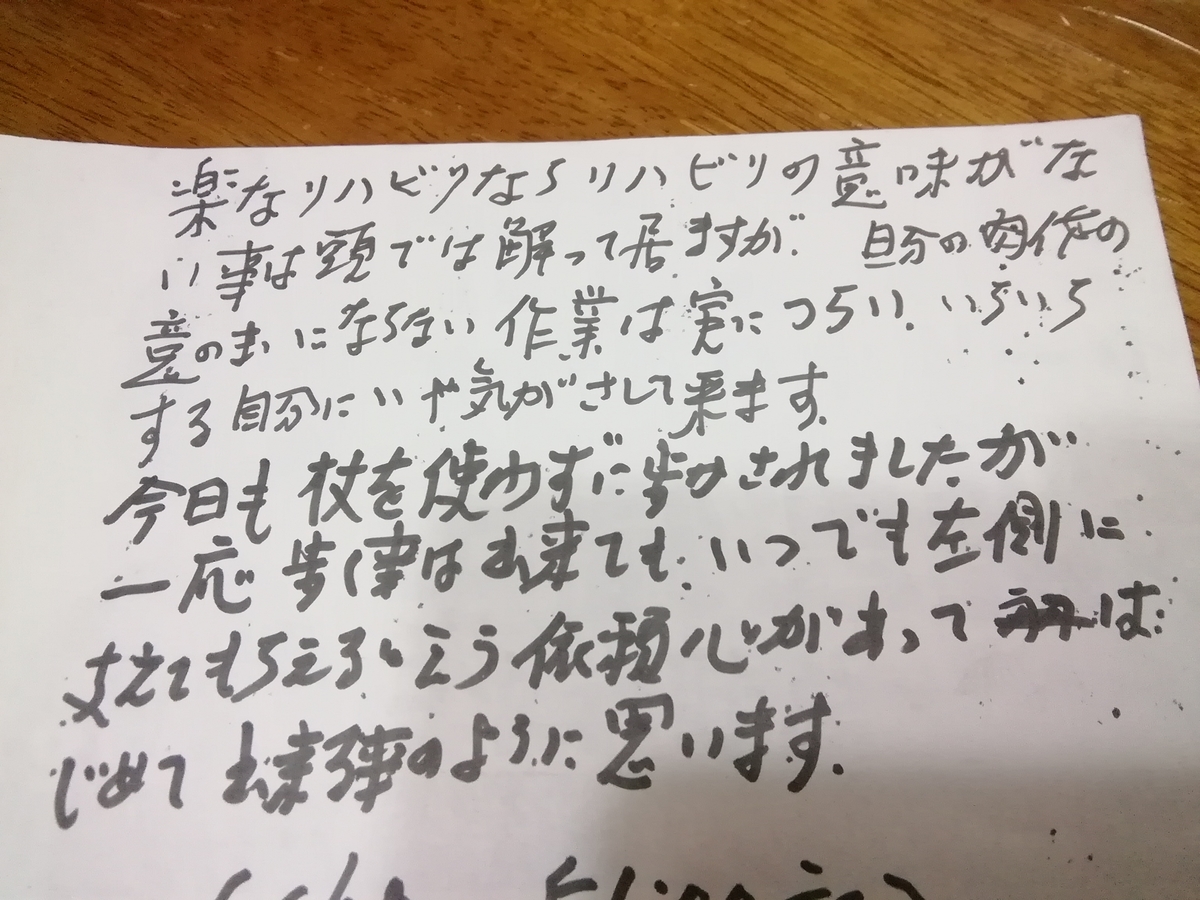 楽なリハビリならリハビリの意味がな
い事は頭では解って居ますが、自分の肉体の
意のまゝにならない作業は実につらい、いらいら
する自分にいや気がさして来ます。
今日も杖を使わずに歩かされましたが
一応歩く事は出来ても、いつでも左側に
支えてもらえると云う依頼心があっては
じめて出来る事のように思います。